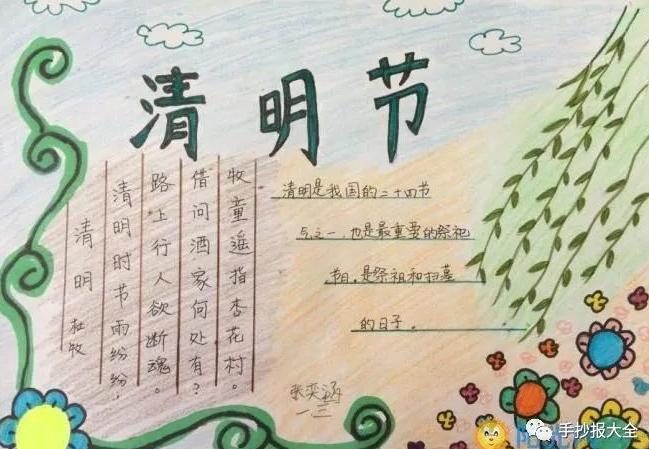 清明节
清明
杜牧
清明时节雨纷纷，
路上行人欲断魂。
借问酒家何处有？
牧童遥指杏花村。
清明是我国的二十四节
气之一，也是最重要的祭祀
节日，是祭祖和扫墓
的日子。
张奕涵
一三
手抄报大全